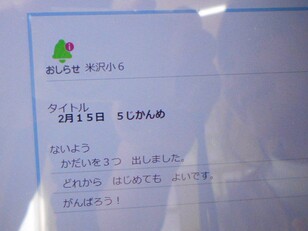 おしらせ 米沢小6
タイトル
2月15日 5じかんめ
ないよう
かだいを3つ 出しました。
どれから はじめても よいです。
がんばろう!